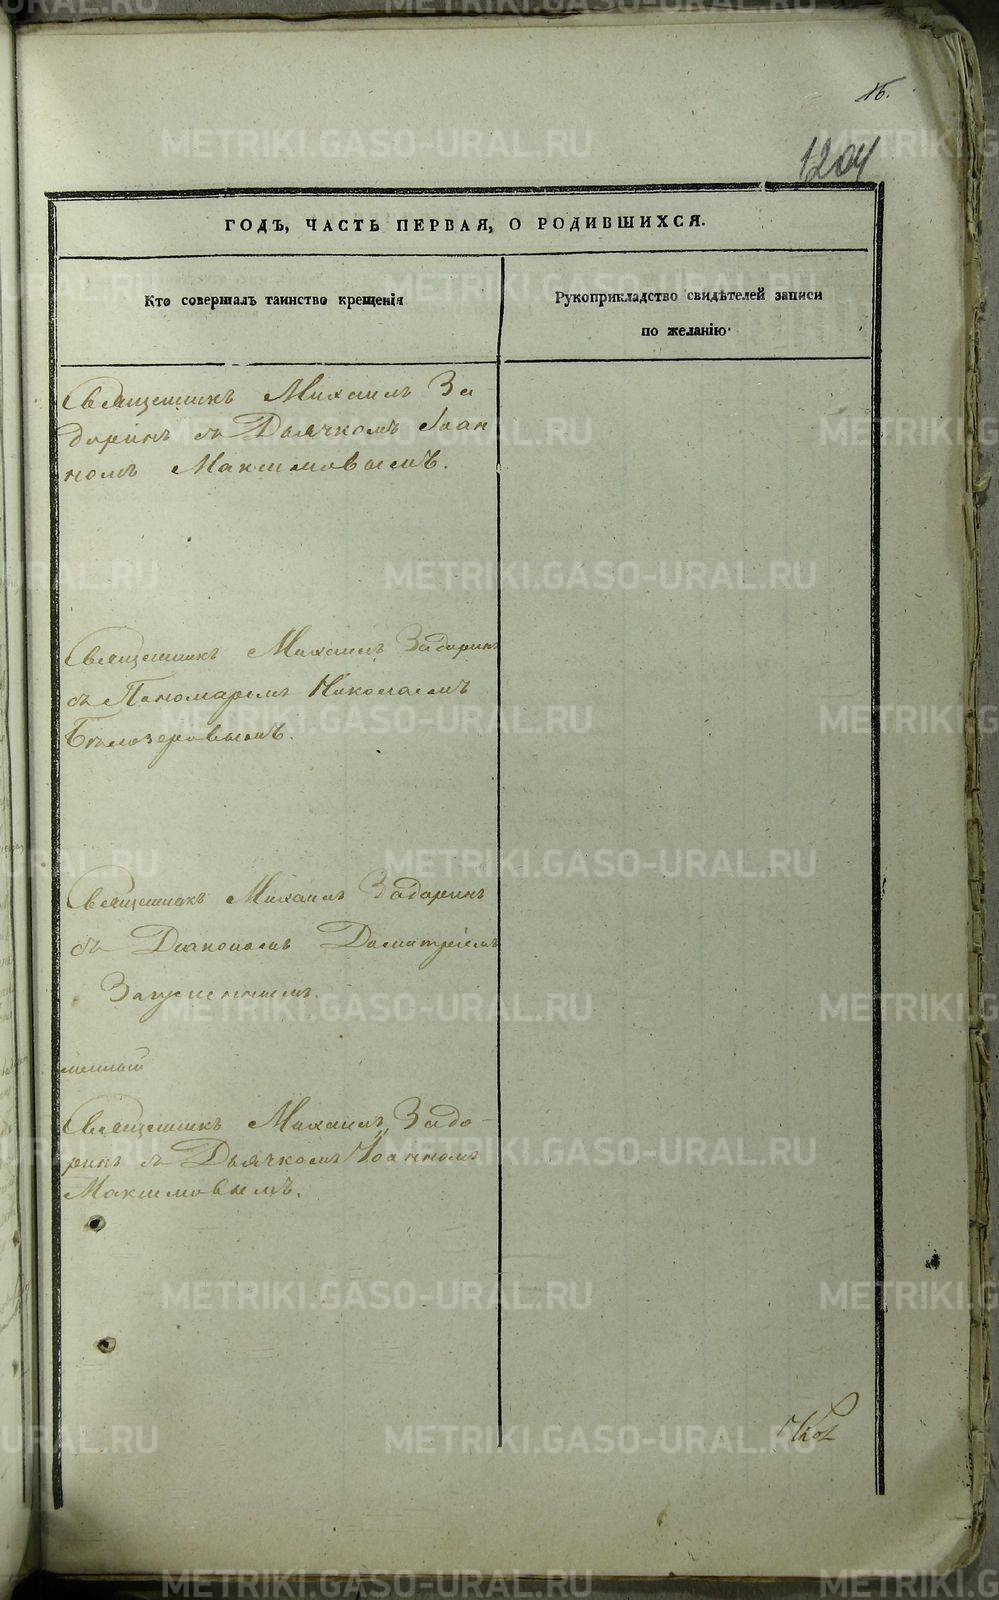 16.
1204
ГОДЪ, ЧАСТЬ ПЕРВАЯ, О РОДИВШИХСЯ.
Кто совершалъ таинство крещенія
Рукоприкладство свидѣтелей записи
по желанію.
Священникъ Михаилъ За
доринъ съ Дьячкомъ Іоан
номъ Максимовымъ.
Священникъ Михаилъ Задоринъ
съ Пономаремъ Николаемъ
Бѣлозеровымъ.
Священникъ Михаилъ Задоринъ
съ Діакономъ Димитріемъ
Священникъ Михаилъ Задо-
ринъ съ Дьячкомъ Іоанномъ
Максимовымъ.
METRIKI.GASO-URAL.RU